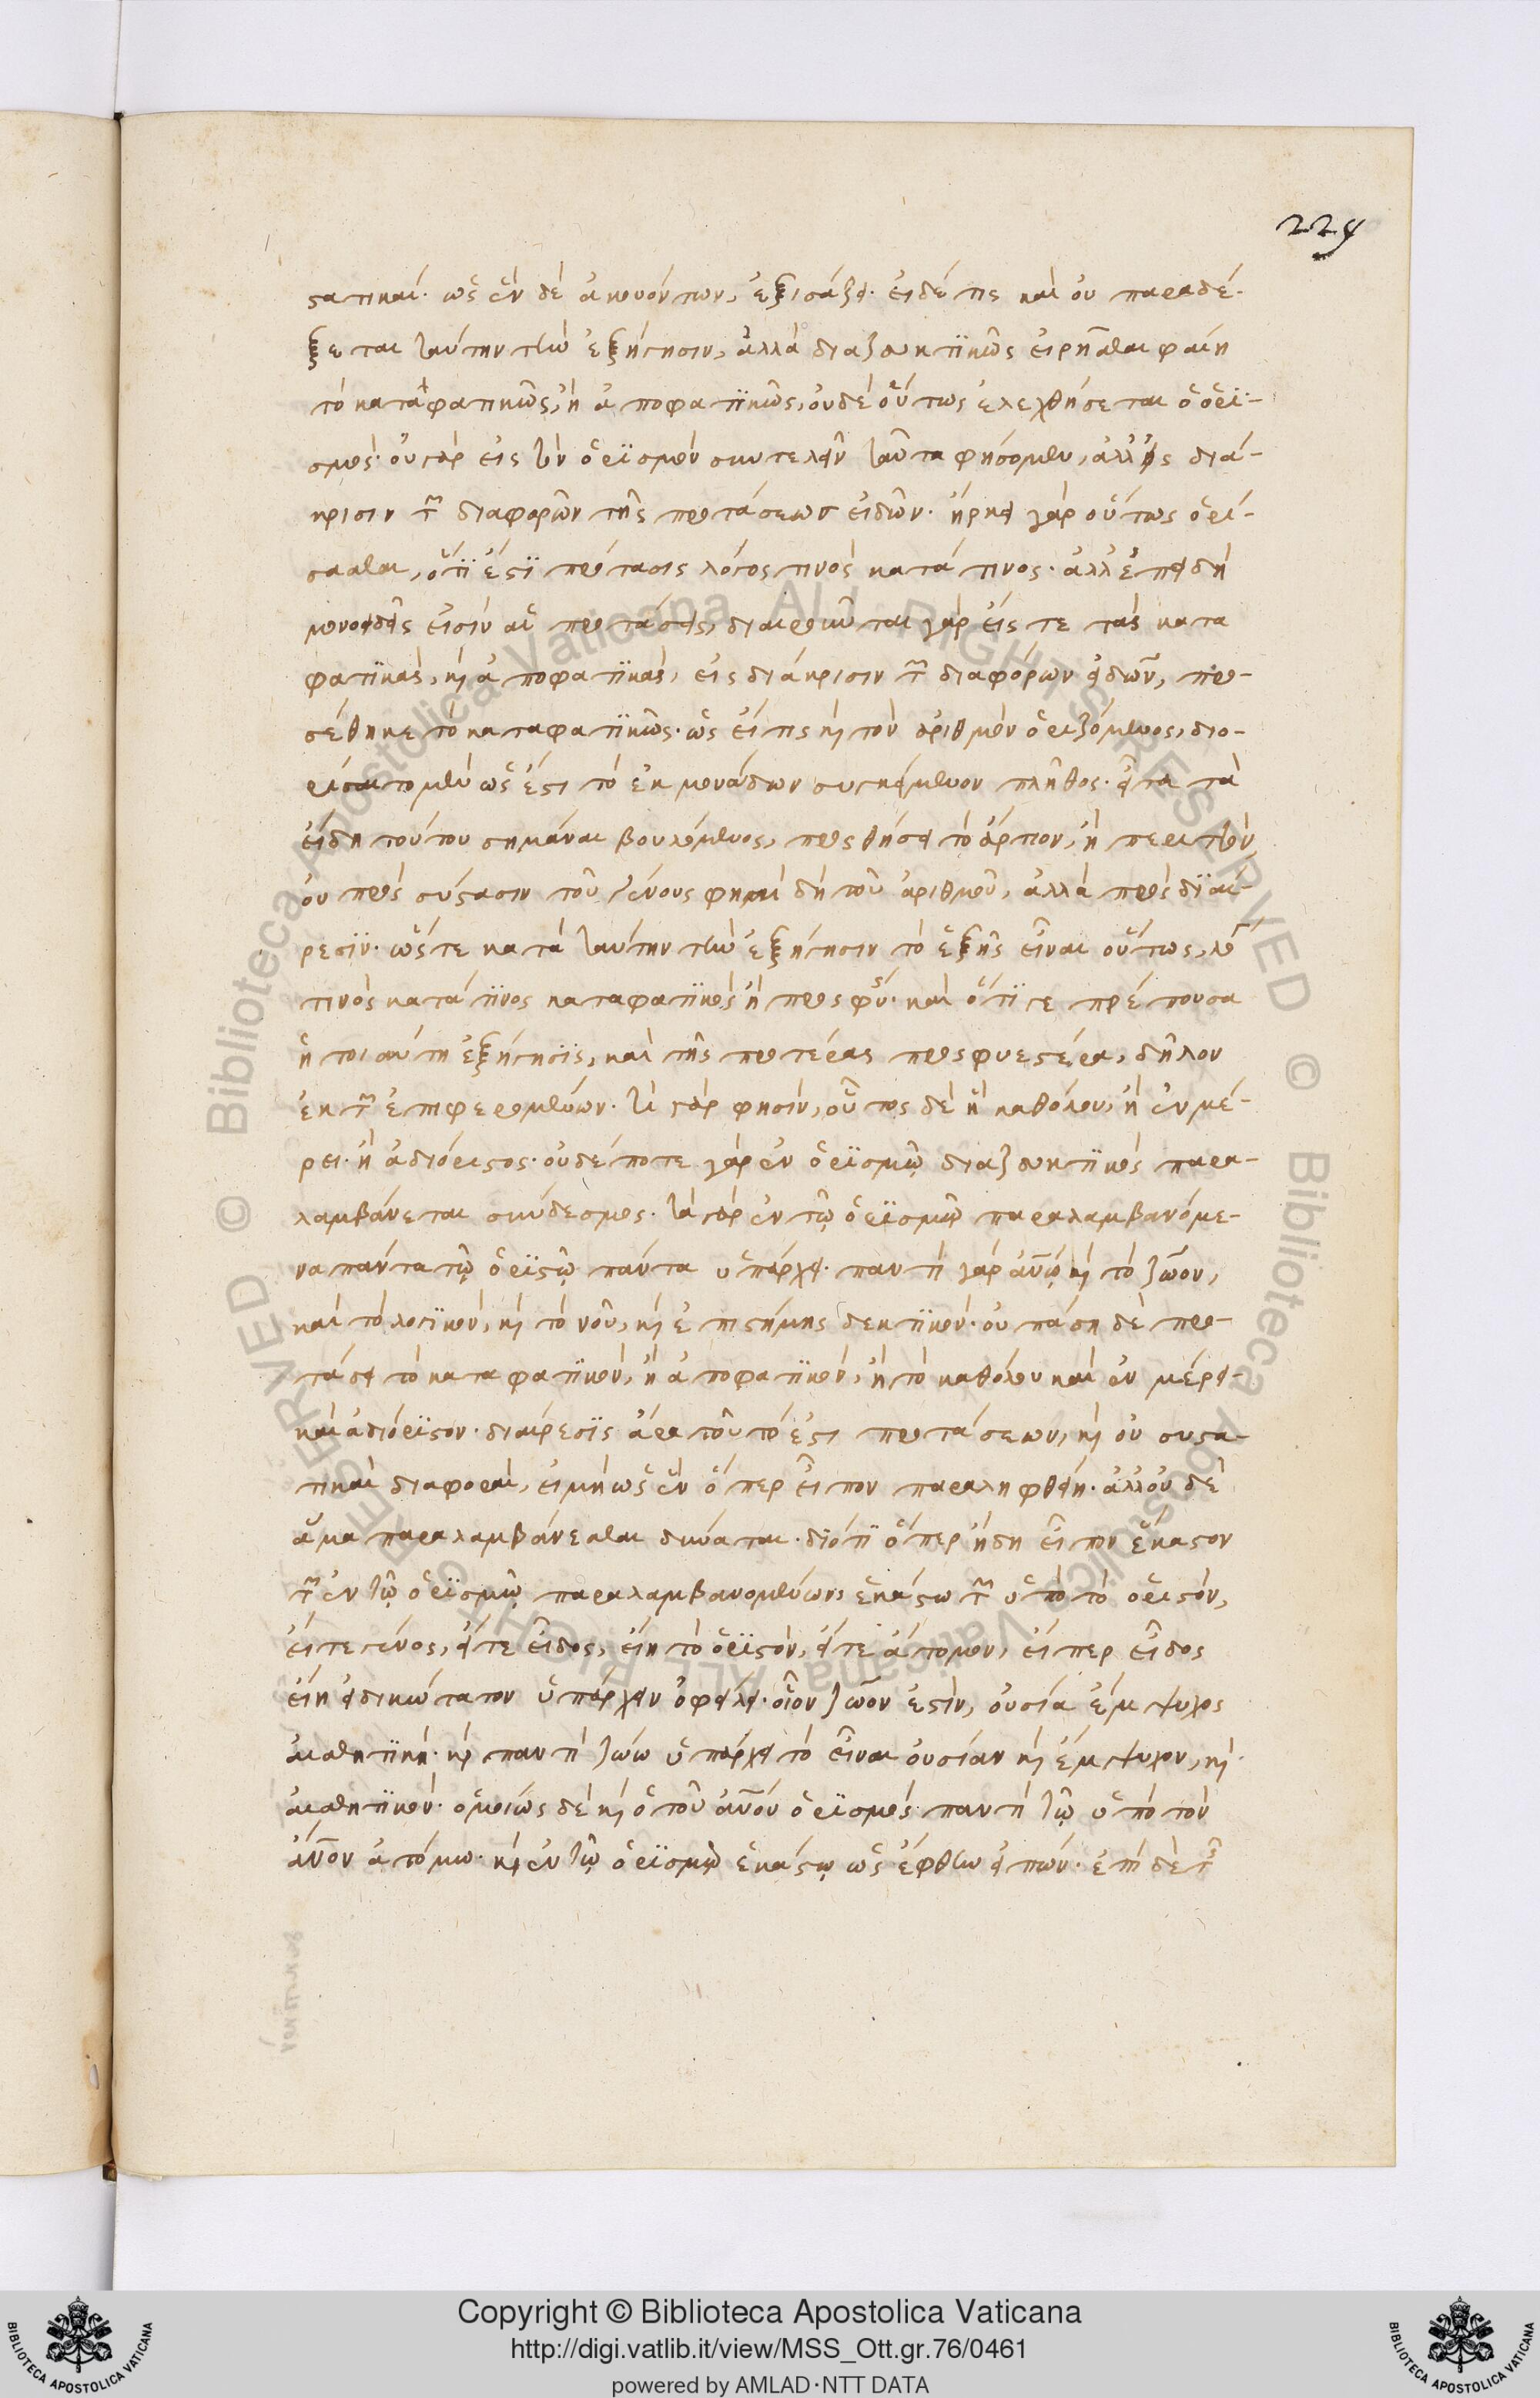 224
στατικαί· ὡς ἓν δὲ ἀκουόντων, ἐξιστάζει· εἰ δέ τις καὶ οὐ παραδέ-
ξεται ταύτην τὴν ἐξήγησιν, ἀλλὰ διαζευκτικῶς εἰρῆσθαι φαίη
τὸ καταφατικῶς, ἢ ἀποφατικῶς, οὐδὲ οὕτως ἐλεχθήσεται ὁ ὁρι-
σμός· οὐ γὰρ εἰς τὸν ὁρισμὸν συντελεῖν ταῦτα φήσομεν, ἀλλ' εἰς διά-
κρισιν τῶν διαφορῶν τῆς προτάσεως εἰδῶν· ἤρκει γὰρ οὕτως ὁρί-
σασθαι, ὅτι ἐστὶ πρότασις λόγος τινὸς κατά τινος· ἀλλ' ἐπειδὴ
μονοειδεῖς εἰσὶν αἱ προτάσεις, διαιροῦνται γὰρ εἴς τε τὰς κατα
φατικὰς, καὶ ἀποφατικὰς, εἰς διάκρισιν τῶν διαφόρων εἰδῶν, προ-
σέθηκε τὸ καταφατικῶς· ὡς εἴ τις καὶ τὸν ἀριθμὸν ὁριζόμενος, διο-
ρίσαιτο μὲν ὡς ἔστι τὸ ἐκ μονάδων συγκείμενον πλῆθος· εἶτα τὰ
εἴδη τούτου σημᾶναι βουλόμενος, προσθήσει τὸ ἄρτιον, ἢ περιττὸν,
οὐ πρὸς σύστασιν τοῦ γένους φημὶ δὴ τοῦ ἀριθμοῦ, ἀλλὰ πρὸς διαί-
ρεσιν· ὥστε κατὰ ταύτην τὴν ἐξήγησιν τὸ ἑξῆς εἶναι οὕτως, λό
τινὸς κατά τινος καταφατικὸς ἢ προσφύς· καὶ ὅτι γε πρέπουσα
ἡ τοιαύτη ἐξήγησις, καὶ τῆς προτέρας προσφυεστέρα, δῆλον
ἐκ τῶν ἐπιφερομένων· τί γάρ φησιν, οὗτος δὲ ἢ καθόλου, ἢ ἐν μέ-
ρει· ἢ ἀδιόριστος· οὐδέποτε γὰρ ἐν ὁρισμῷ διαζευκτικὸς παρα-
λαμβάνεται σύνδεσμος· τὰ γὰρ ἐν τῷ ὁρισμῷ παραλαμβανόμε-
να πάντα τῷ ὁριστῷ πάντα ὑπάρχει· παντὶ γὰρ ἀνῷ καὶ τὸ ζῶον,
καὶ τὸ λογικὸν, καὶ τὸ νοῦ, καὶ ἐπιστήμης δεκτικὸν· οὐ πάσῃ δὲ προ-
τάσει τὸ καταφατικὸν, ἢ ἀποφατικὸν, ἢ τὸ καθόλου καὶ ἐν μέρει·
καὶ ἀδιόριστον· διαίρεσις ἄρα τοῦτό ἐστι προτάσεων, καὶ οὐ συστα-
τικαὶ διαφοραὶ, εἰ μὴ ὡς ἓν ὅπερ εἶπον παραληφθείη· ἀλλ' οὐδὲ
ἅμα παραλαμβάνεσθαι δύναται· διότι ὅπερ ἤδη εἶπον ἕκαστον
τῶν ἐν τῷ ὁρισμῷ παραλαμβανομένων, ἑκάστω τῶν ὑπὸ τὸ ὁριστόν,
εἴτε γένος, εἴτε εἶδος, εἴη τὸ ὁριστὸν, εἴτε ἄτομον, εἴπερ εἶδος
εἴη εἰδικώτατον ὑπάρχειν ὀφείλει· οἷον ζῶον ἐστὶν, οὐσία ἔμψυχος
αἰσθητικὴ· καὶ παντὶ ζώω ὑπάρχει τὸ εἶναι οὐσίαν καὶ ἔμψυχον, καὶ
αἰσθητικὸν· ὁμοίως δὲ καὶ ὁ τοῦ ἀνοῦ ὁρισμὸς παντὶ τῷ ὑπὸ τὸν
ἄνον ἀτόμω· καὶ ἐν τῷ ὁρισμῷ ἑκάστῳ ὡς ἔφθην εἰπών· ἐπὶ δὲ τῆς
Copyright © Biblioteca Apostolica Vaticana
http://digi.vatlib.it/view/MSS_Ott.gr.76/0461
powered by AMLAD·NTT DATA